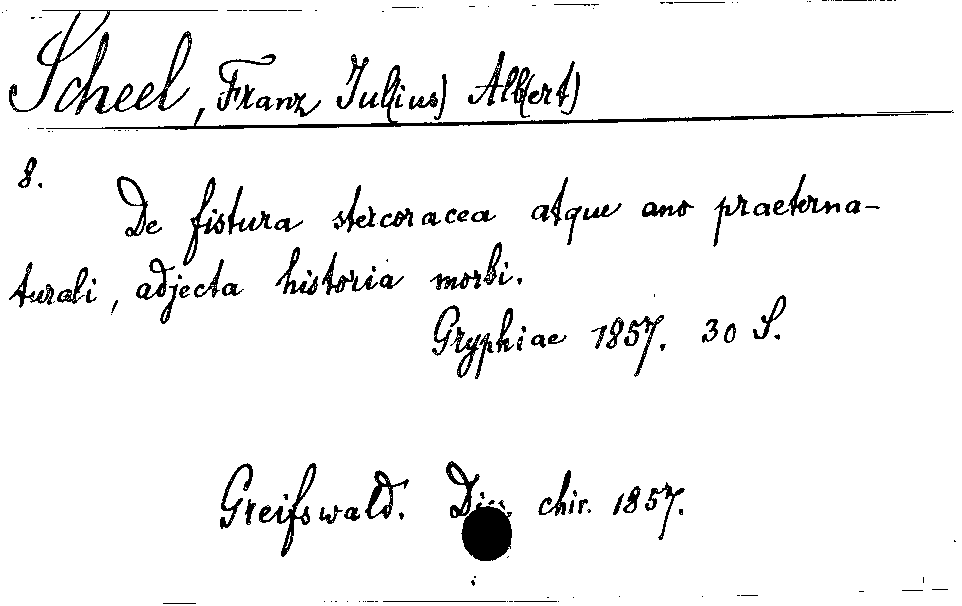 Scheel, Franz Jul(ius) Alb(ert)
8.
De fistura stercoracea atque ano praeterna-
turali, adjecta historia morbi.
Gryphiae 1857. 30 S.
Greifswald. Diss. chir. 1857.